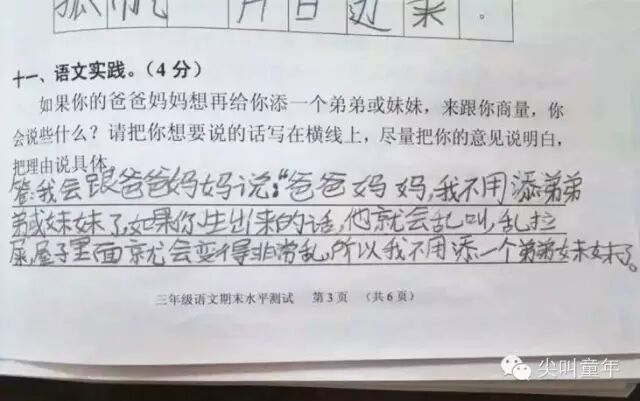 孤帆 片日边来。
十一、语文实践。(4分)
如果你的爸爸妈妈想再给你添一个弟弟或妹妹,来跟你商量,你
会说些什么?请把你想要说的话写在横线上,尽量把你的意见说明白,
把理由说具体。
答:我会跟爸爸妈妈说:“爸爸妈妈,我不用添弟弟
弟或妹妹了,如果你生出来的话,他就会乱叫,乱拉
屎,屋子里面就会变得非常乱,所以我不用添一个弟弟妹妹了。
三年级语文期末水平测试 第3页 (共6页)
尖叫童年